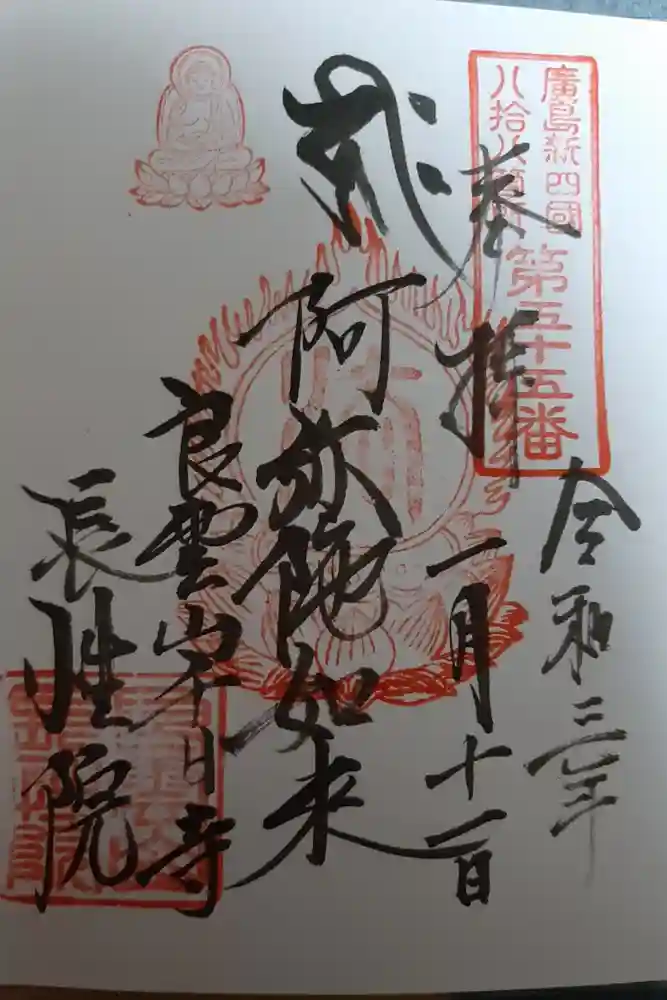 廣島新四國
八拾八箇所
第五十五番
奉拝
令和三年
一月十一日
阿弥陀如来
良雲山
日寺
長性院